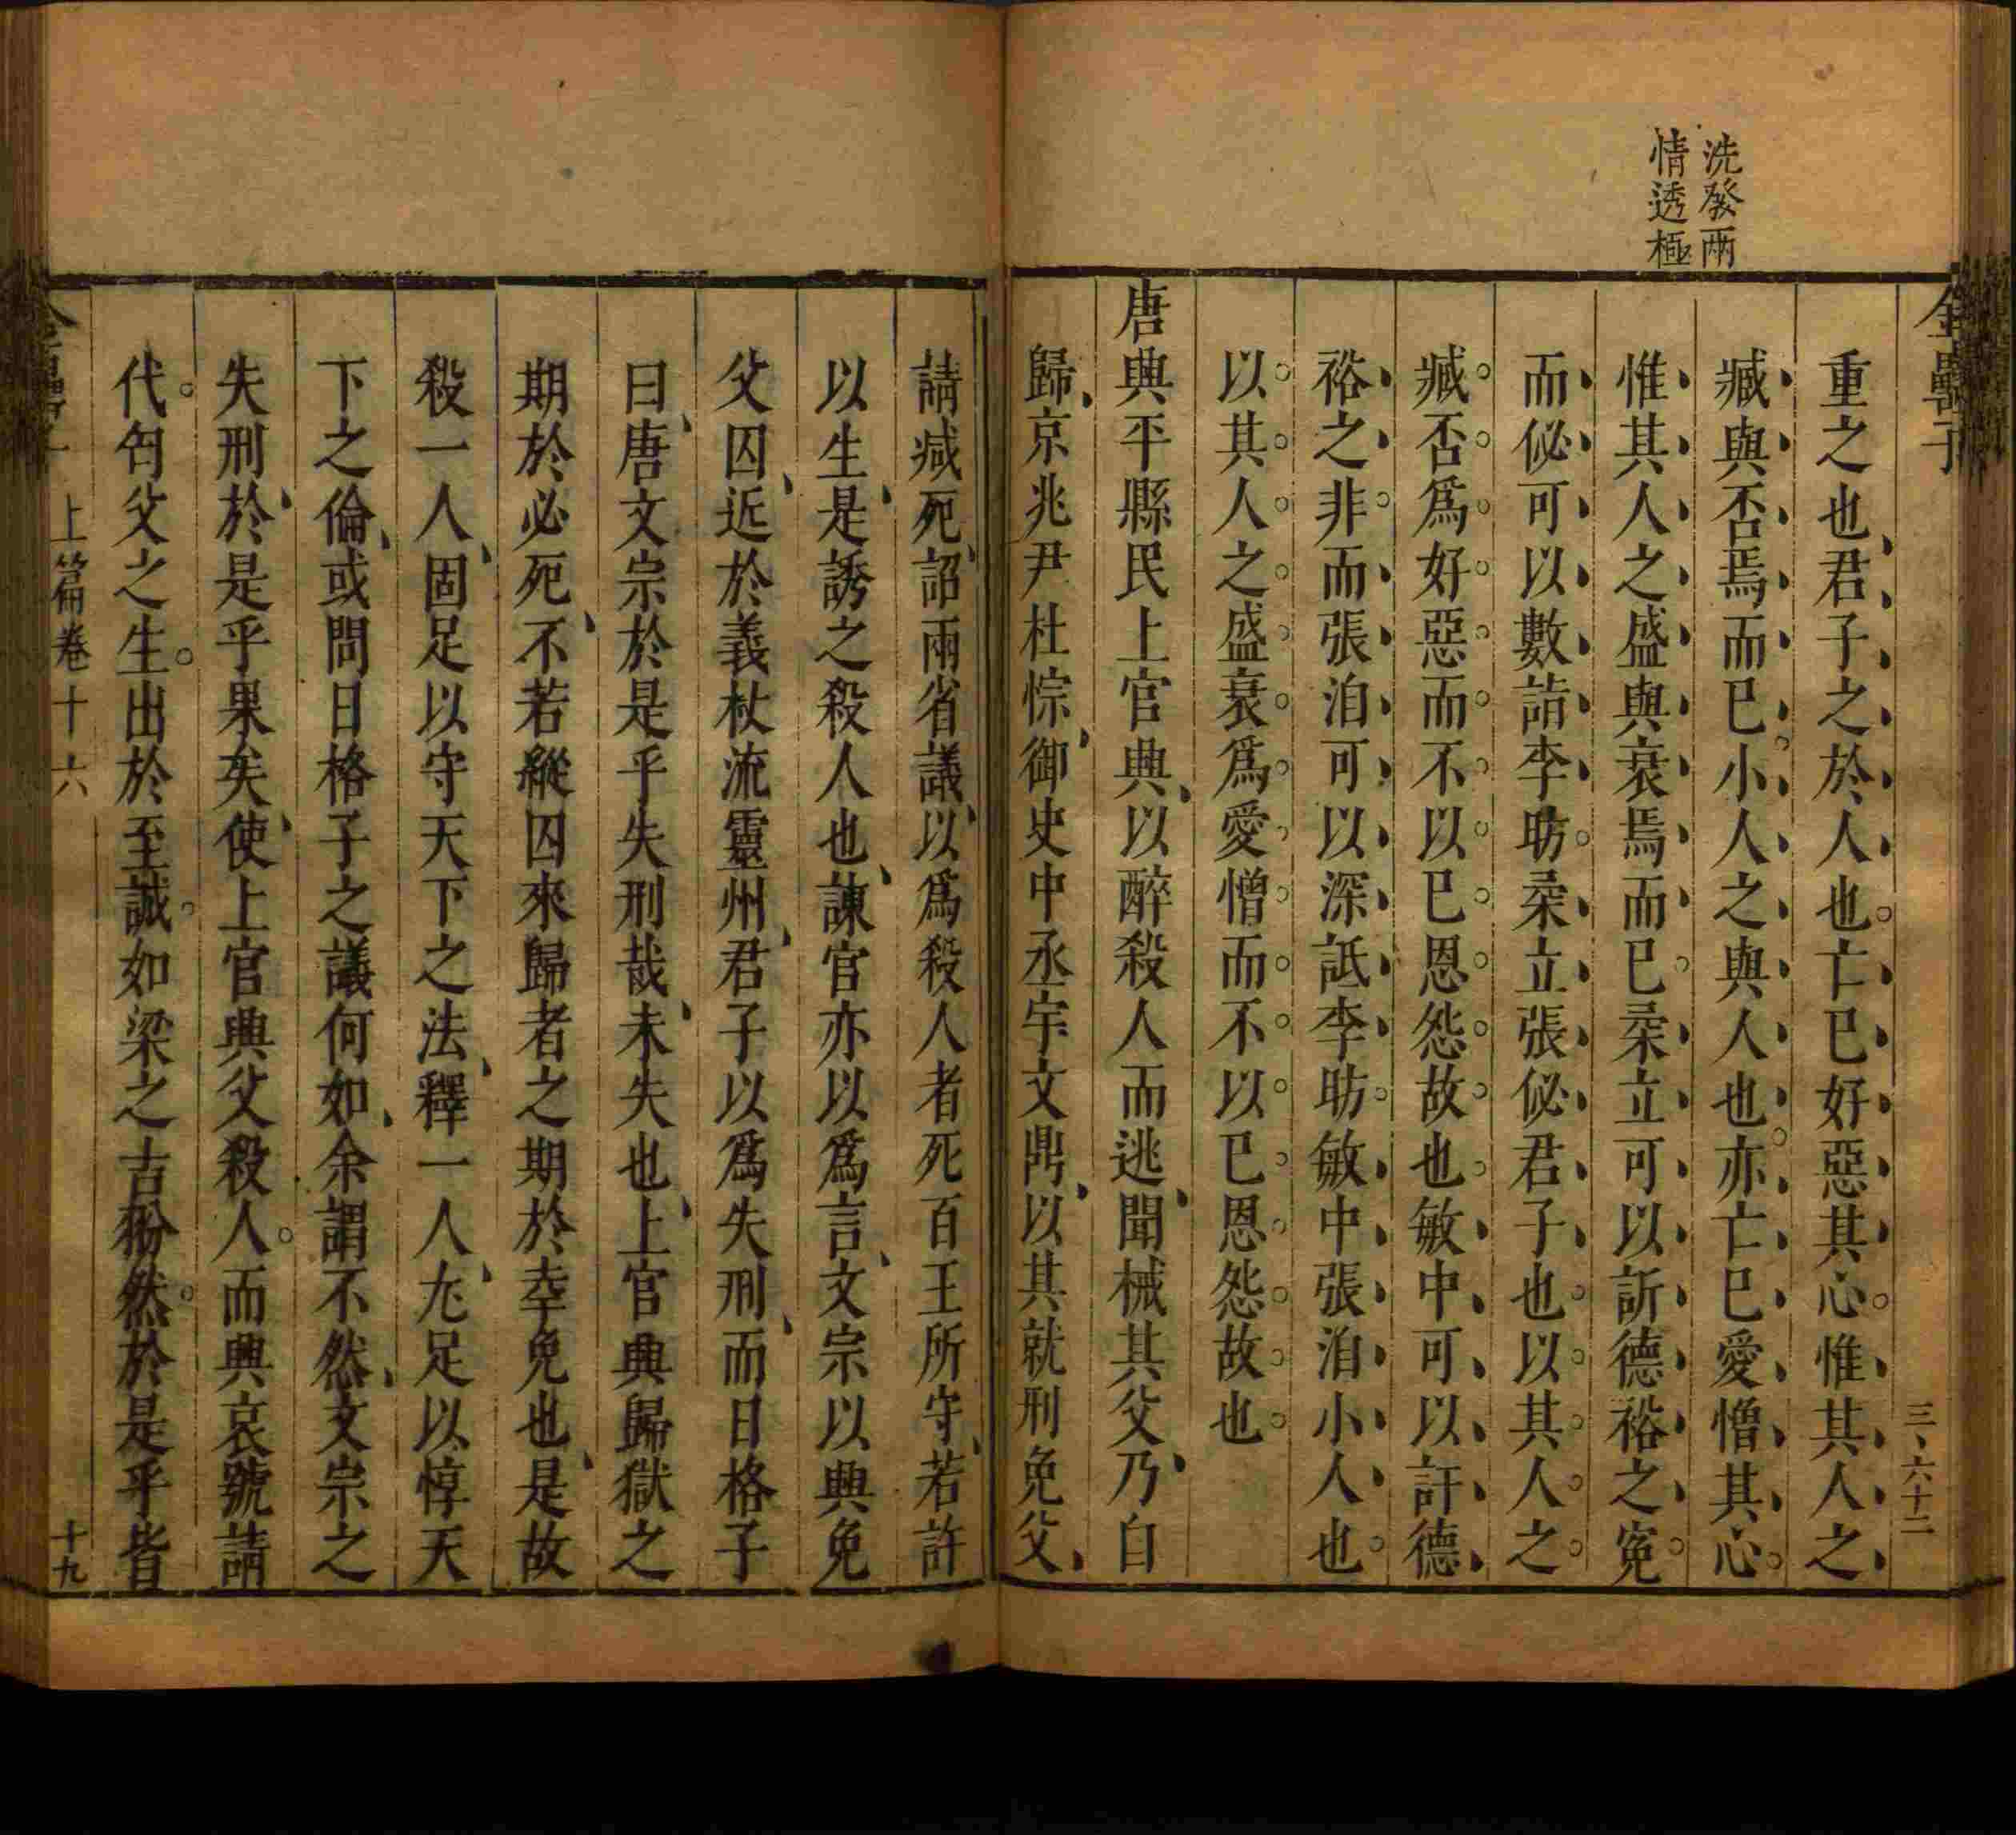 洗發兩
情透極
金罍子
三、六十二
重之也君子之於人也亡已好惡其心惟其人之
臧與否焉而已小人之與人也亦亡已愛憎其心
惟其人之盛與衰焉而已桒立可以訢德裕之寃
而佖可以數詰李昉桒立張佖君子也以其人之
臧否爲好惡而不以已恩怨故也敏中可以訐德
裕之非而張洎可以深詆李昉敏中張洎小人也
以其人之盛衰爲愛憎而不以已恩怨故也
唐興平縣民上官興以醉殺人而逃聞械其父乃自
歸京兆尹杜悰御史中丞宇文鼎以其就刑免父
請減死詔兩省議以爲殺人者死百王所守若許
以生是誘之殺人也諫官亦以爲言文宗以興免
父囚近於義杖流靈州君子以爲失刑而曰格子
曰唐文宗於是乎失刑哉未失也上官興歸獄之
期於必死不若縱囚來歸者之期於幸免也是故
殺一人固足以守天下之法釋一人尤足以惇天
下之倫或問曰格子之議何如余謂不然文宗之
失刑於是乎果矣使上官興父殺人而興哀號請
代匄父之生出於至誠如梁之吉翂然於是乎皆
上篇卷十六
十九